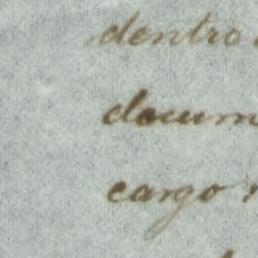 dentro
docum
cargo